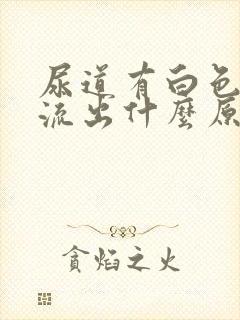 尿道有白色
流出什麼原
貪焰之火